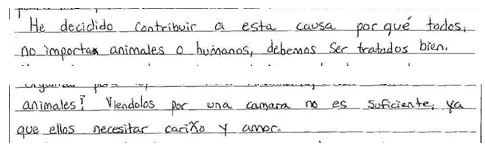 He decidido contribuir a esta causa por qué todos,
no importan animales o humanos, debemos ser tratados bien.
animales? Viendolos por una camara no es suficiente, ya
que ellos necesitar cariño y amor.